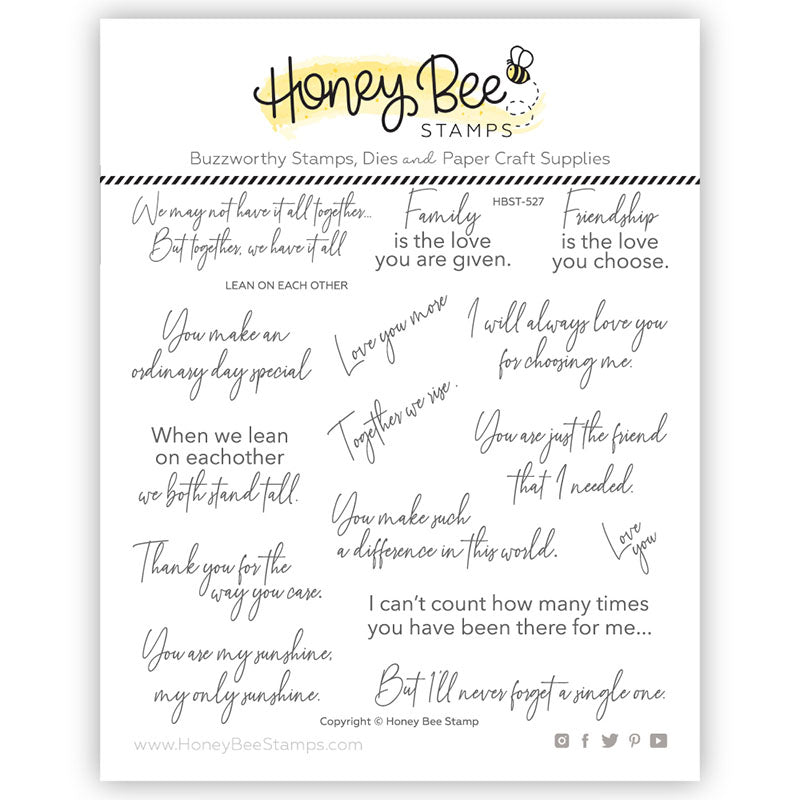 Honey Bee
STAMPS
Buzzworthy Stamps, Dies and Paper Craft Supplies
We may not have it all together...
But together, we have it all
Family
is the love
you are given.
HBST-527
Friendship
is the love
you choose.
LEAN ON EACH OTHER
You make an
ordinary day special
Love you more
I will always love you
for choosing me.
When we lean
on eachother
we both stand tall.
Together we rise.
You are just the friend
that I needed.
You make such
a difference in this world.
Love
you
Thank you for the
way you care.
I can't count how many times
you have been there for me...
You are my sunshine,
my only sunshine.
But I'll never forget a single one.
Copyright © Honey Bee Stamp
www.HoneyBeeStamps.com